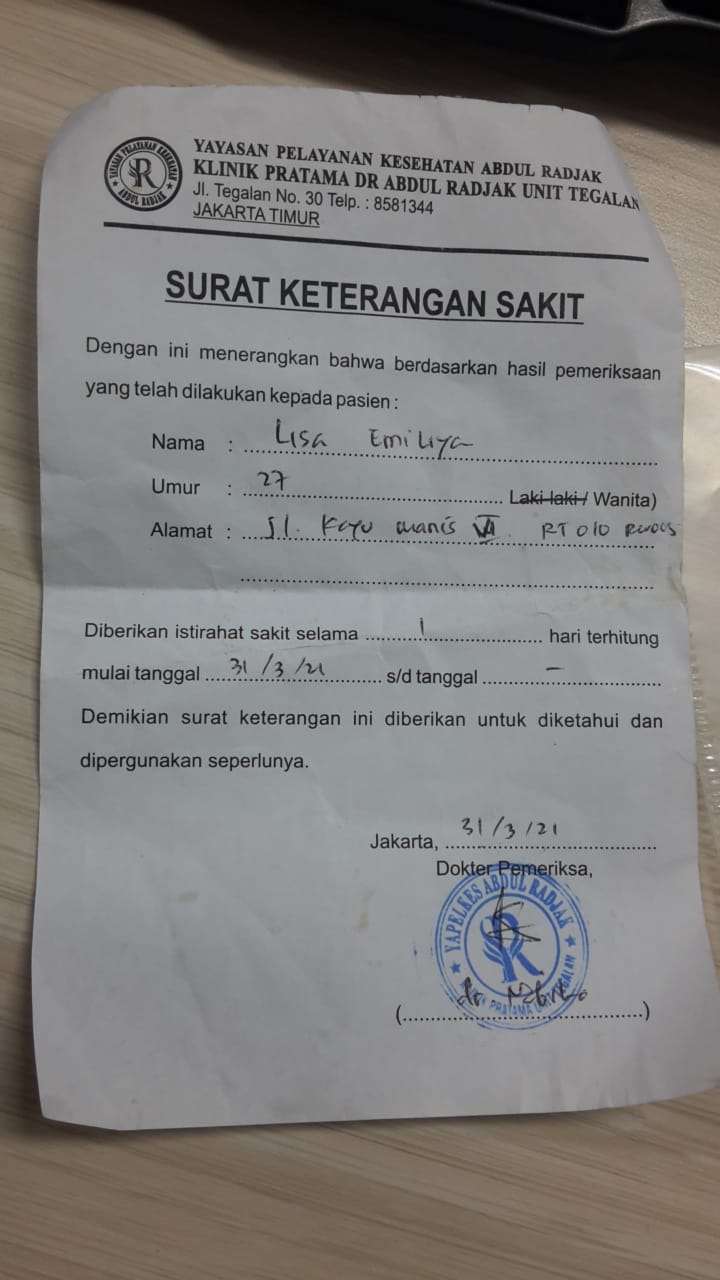 YAYASAN PELAYANAN KESEHATAN ABDUL RADJAK
KLINIK PRATAMA DR ABDUL RADJAK UNIT TEGALAN
Jl. Tegalan No. 30 Telp. : 8581344
JAKARTA TIMUR
YAYASAN PELAYANAN KESEHATAN
ABDUL RADJAK
SURAT KETERANGAN SAKIT
Dengan ini menerangkan bahwa berdasarkan hasil pemeriksaan
yang telah dilakukan kepada pasien :
Nama : Lisa Emiliya
Umur : 27 Laki-laki / Wanita)
Alamat : Jl. Kayu manis VI RT 010
Diberikan istirahat sakit selama 1 hari terhitung
mulai tanggal 31/3/21 s/d tanggal -
Demikian surat keterangan ini diberikan untuk diketahui dan
dipergunakan seperlunya.
Jakarta, 31/3/21
Dokter Pemeriksa,
YAPELKES ABDUL RADJAK
PRATAMA UNIT TEGALAN
dr.
(....................................)